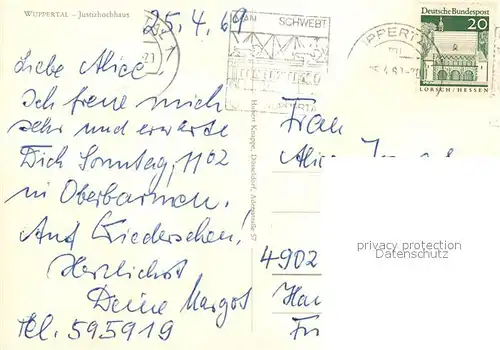 WUPPERTAL – Justizhochhaus
25.4.69
Liebe Alice.
Ich freue mich
sehr und erwarte
Dich Sonntag, 11 02
in Oberbarmen.
Auf Wiedersehen!
Herzlichst
Deine Margot
Tel. 595919
MAN SCHWEBT
Deutsche Bundespost
20
LORSCH/HESSEN
Düsseldorf
Frau
4902
privacy protection
Datenschutz